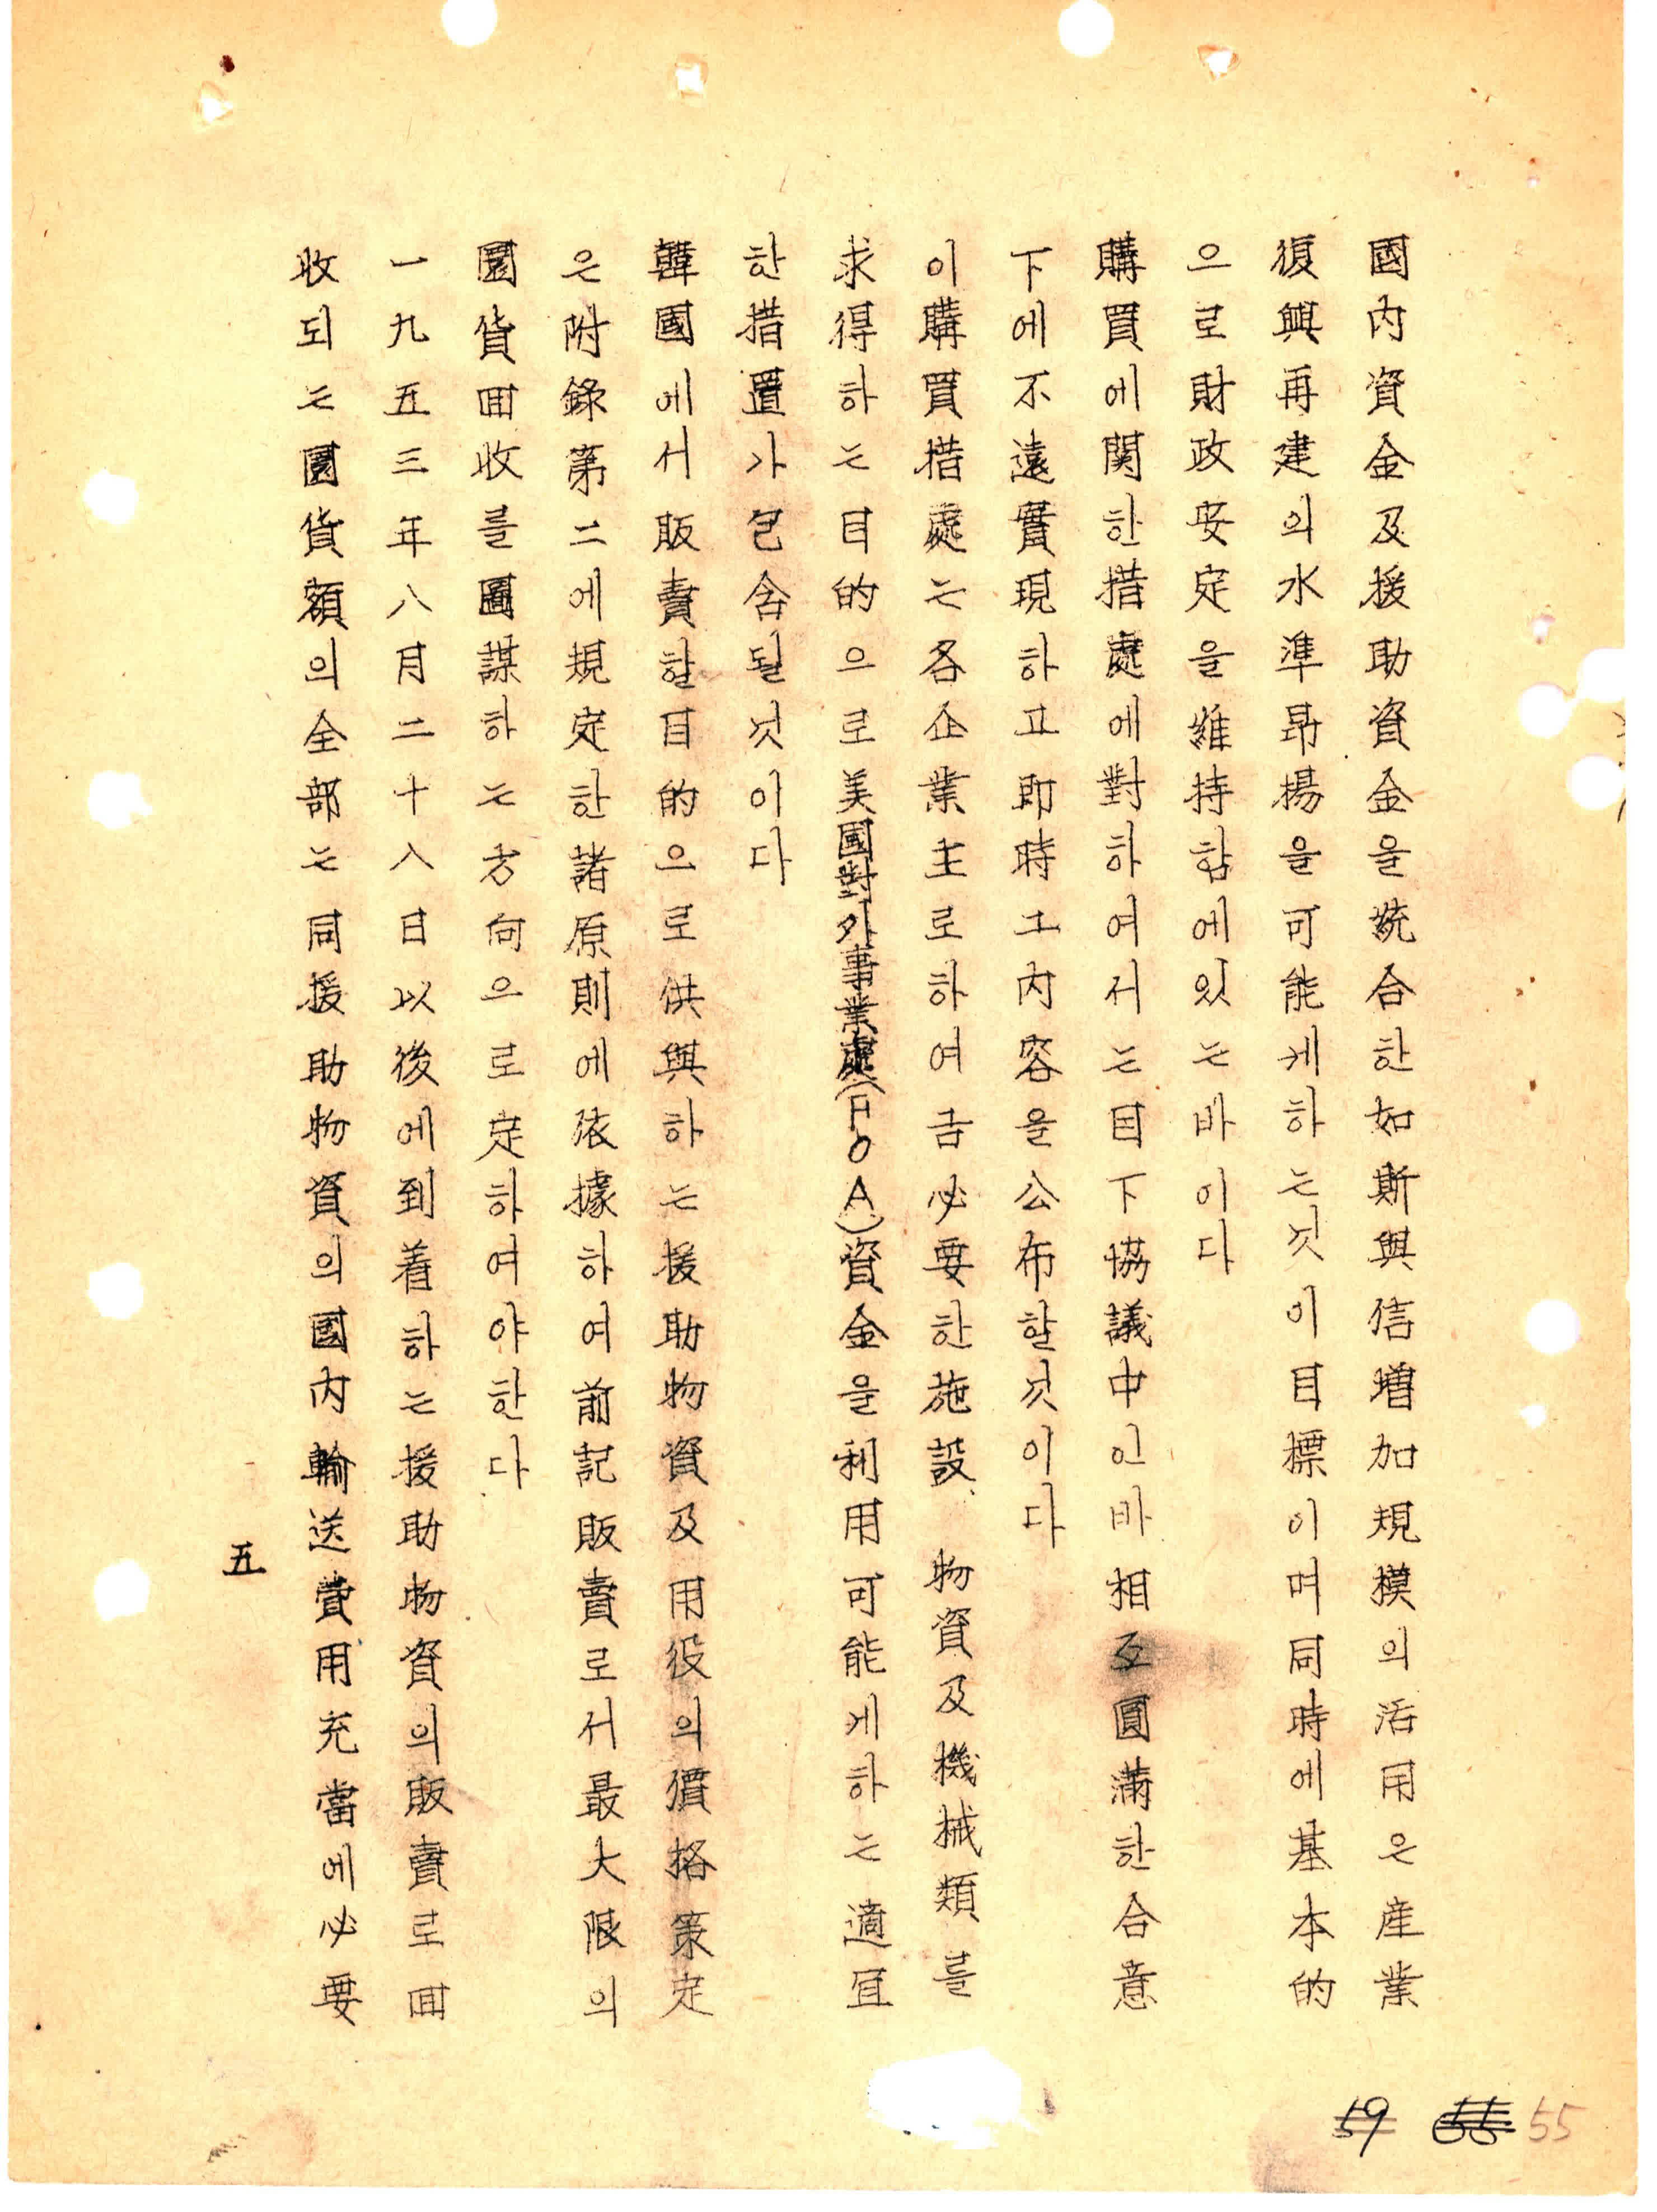 國內資金及援助資金을統合한如斯與信增加規模의活用은産業
復興再建의水準昻揚을可能케하는것이目標이며同時에基本的
으로財政安定을維持함에있는바이다
購買에関한措處에對하여서는目下協議中인바相互圓滿한合意
下에不遠實現하고即時그內容을公布할것이다
이購買措處는各企業主로하여금必要한施設 物資及機械類를
求得하는目的으로美國對外事業處(FOA)資金을利用可能케하는適宜
한措置가包含될것이다
韓國에서販賣할目的으로供與하는援助物資及用役의價格策定
은附錄第二에規定한諸原則에依據하여前記販賣로서最大限의
圜貨回收를圖謀하는方向으로定하여야한다
一九五三年八月二十八日以後에到着하는援助物資의販賣로回
收되는圜貨額의全部는同援助物資의國內輸送費用充當에必要
五
59 55 55